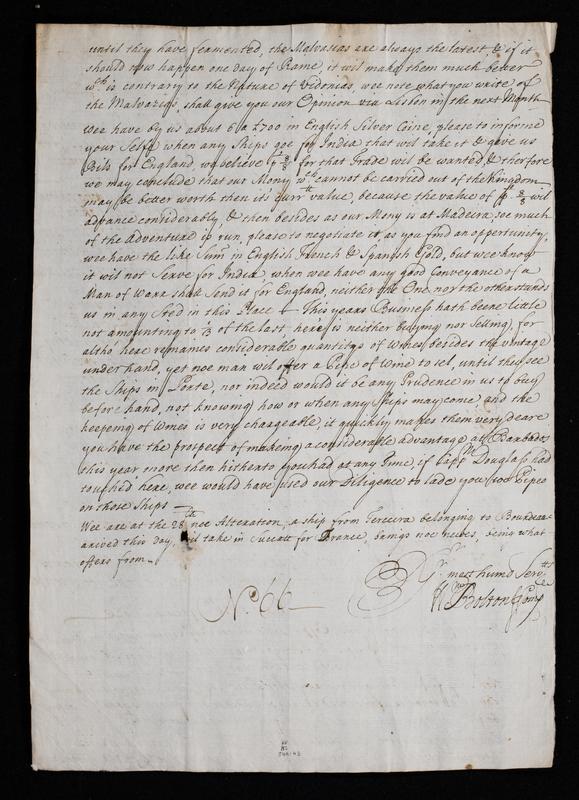 until they have fermented, the Malvasias are always the latest, & if it
should now happen one day of Raine, it wil make them much better
wch is contrary to the Nature of Vidonias, wee note what you write of
the Malvazias, shall give you our Opinion via Lisbon in the next Month
Wee have by us about 6 a £700 in English Silver Coine, please to informe
your Selfe when any Ships goe for India that wil take it & give us
Bils for England, we believe ps 8/8 for that trade wil be wanted, & therefore
we may conclude that our Mony wch cannot be carried out of the Kingdom
may be better worth then its curr.tt value, because the value of ps 8/8 wil
advance considerably, & then besides as our Mony is at Madeira soe much
of the Adventure is run, please to negotiate it, as you find an opportunity,
wee have the like Sum in English French & Spanish Gold, but wee know
it wil not Serve for India, when wee have any good Conveyance of a
Man of Warr shall Send it for England, neither the One nor the other stands
us in any Sted in this Place + This years Busness hath beene little
not amounting to 1/3 of the last here is neither buying nor Selling, for
altho' here remaines considerable quantitys of Wines besides the vintage
under hand, yet noe man wil offer a Pipe of Wine to sel, until they see
the Ships in Porte, nor indeed would it be any Prudence in us to buy
before hand, not knowing how or when any Ships may come, and the
keepeing of Wines is very chargeable, it quickly makes them very deare
you have the prospect of making a considerable advantage at Barbados
this year more then hitherto you had at any time, if Capp.n Douglass had
touch'd here, wee would have used our Diligence to lade you 100 Pipes
on those Ships —
Wee are at the 28th noe Alteration, a ship from Tercera belonging to Bourdeaux
arived this day, wil take in Succatt for France, brings noe newes, being what
offers from —
Sr. most humb Servtts
Wm Bolton & Comp
No. 66